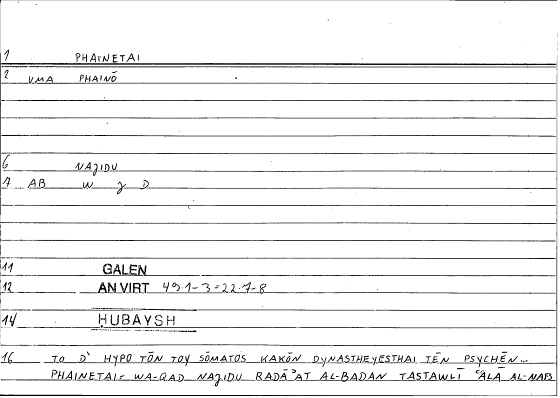 1 PHAINETAI
2 VMA PHAINŌ
6 NAJIDU
7 AB W J D
11 GALEN
12 AN VIRT 49.1-3=22.7-8
14 ḤUBAYSH
16 TO D' HYPO TŌN TOY SŌMATOS KAKŌN DYNASTHEYESTHAI TĒN PSYCHĒN...
PHAINETAI= WA-QAD NAJIDU RADĀʾAT AL-BADAN TASTAWLĪ ʿALĀ AL-NAFS